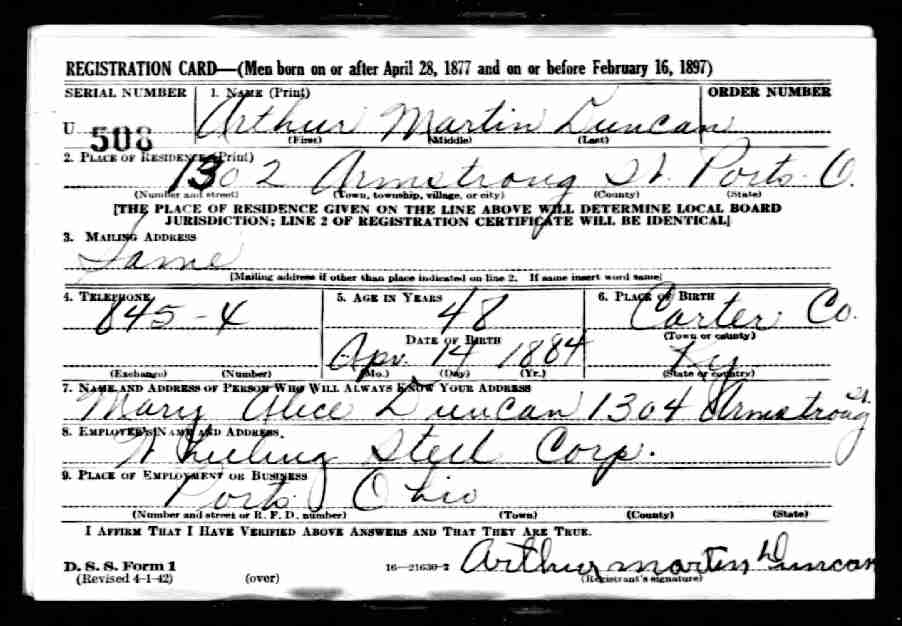 REGISTRATION CARD—(Men born on or after April 28, 1877 and on or before February 16, 1897)
SERIAL NUMBER 1. NAME (Print) ORDER NUMBER
U 508 Arthur Martin Duncan
(First) (Middle) (Last)
2. PLACE OF RESIDENCE (Print)
1302 Armstrong St. Ports. O.
(Number and street) (Town, township, village, or city) (County) (State)
[THE PLACE OF RESIDENCE GIVEN ON THE LINE ABOVE WILL DETERMINE LOCAL BOARD
JURISDICTION; LINE 2 OF REGISTRATION CERTIFICATE WILL BE IDENTICAL]
3. MAILING ADDRESS
Same
[Mailing address if other than place indicated on line 2. If same insert word same]
4. TELEPHONE 5. AGE IN YEARS 6. PLACE OF BIRTH
845-X 48 Carter Co.
DATE OF BIRTH (Town or county)
Apr. 14 1884 Ky
(Exchange) (Number) (Mo.) (Day) (Yr.) (State or country)
7. NAME AND ADDRESS OF PERSON WHO WILL ALWAYS KNOW YOUR ADDRESS
Mary Alice Duncan 1304 Armstrong St.
8. EMPLOYER'S NAME AND ADDRESS
Wheeling Steel Corp.
9. PLACE OF EMPLOYMENT OR BUSINESS
Ports. Ohio
(Number and street or R. F. D. number) (Town) (County) (State)
I AFFIRM THAT I HAVE VERIFIED ABOVE ANSWERS AND THAT THEY ARE TRUE.
D. S. S. Form 1 16—21630-2 Arthur martin Duncan
(Revised 4-1-42) (over) (Registrant's signature)